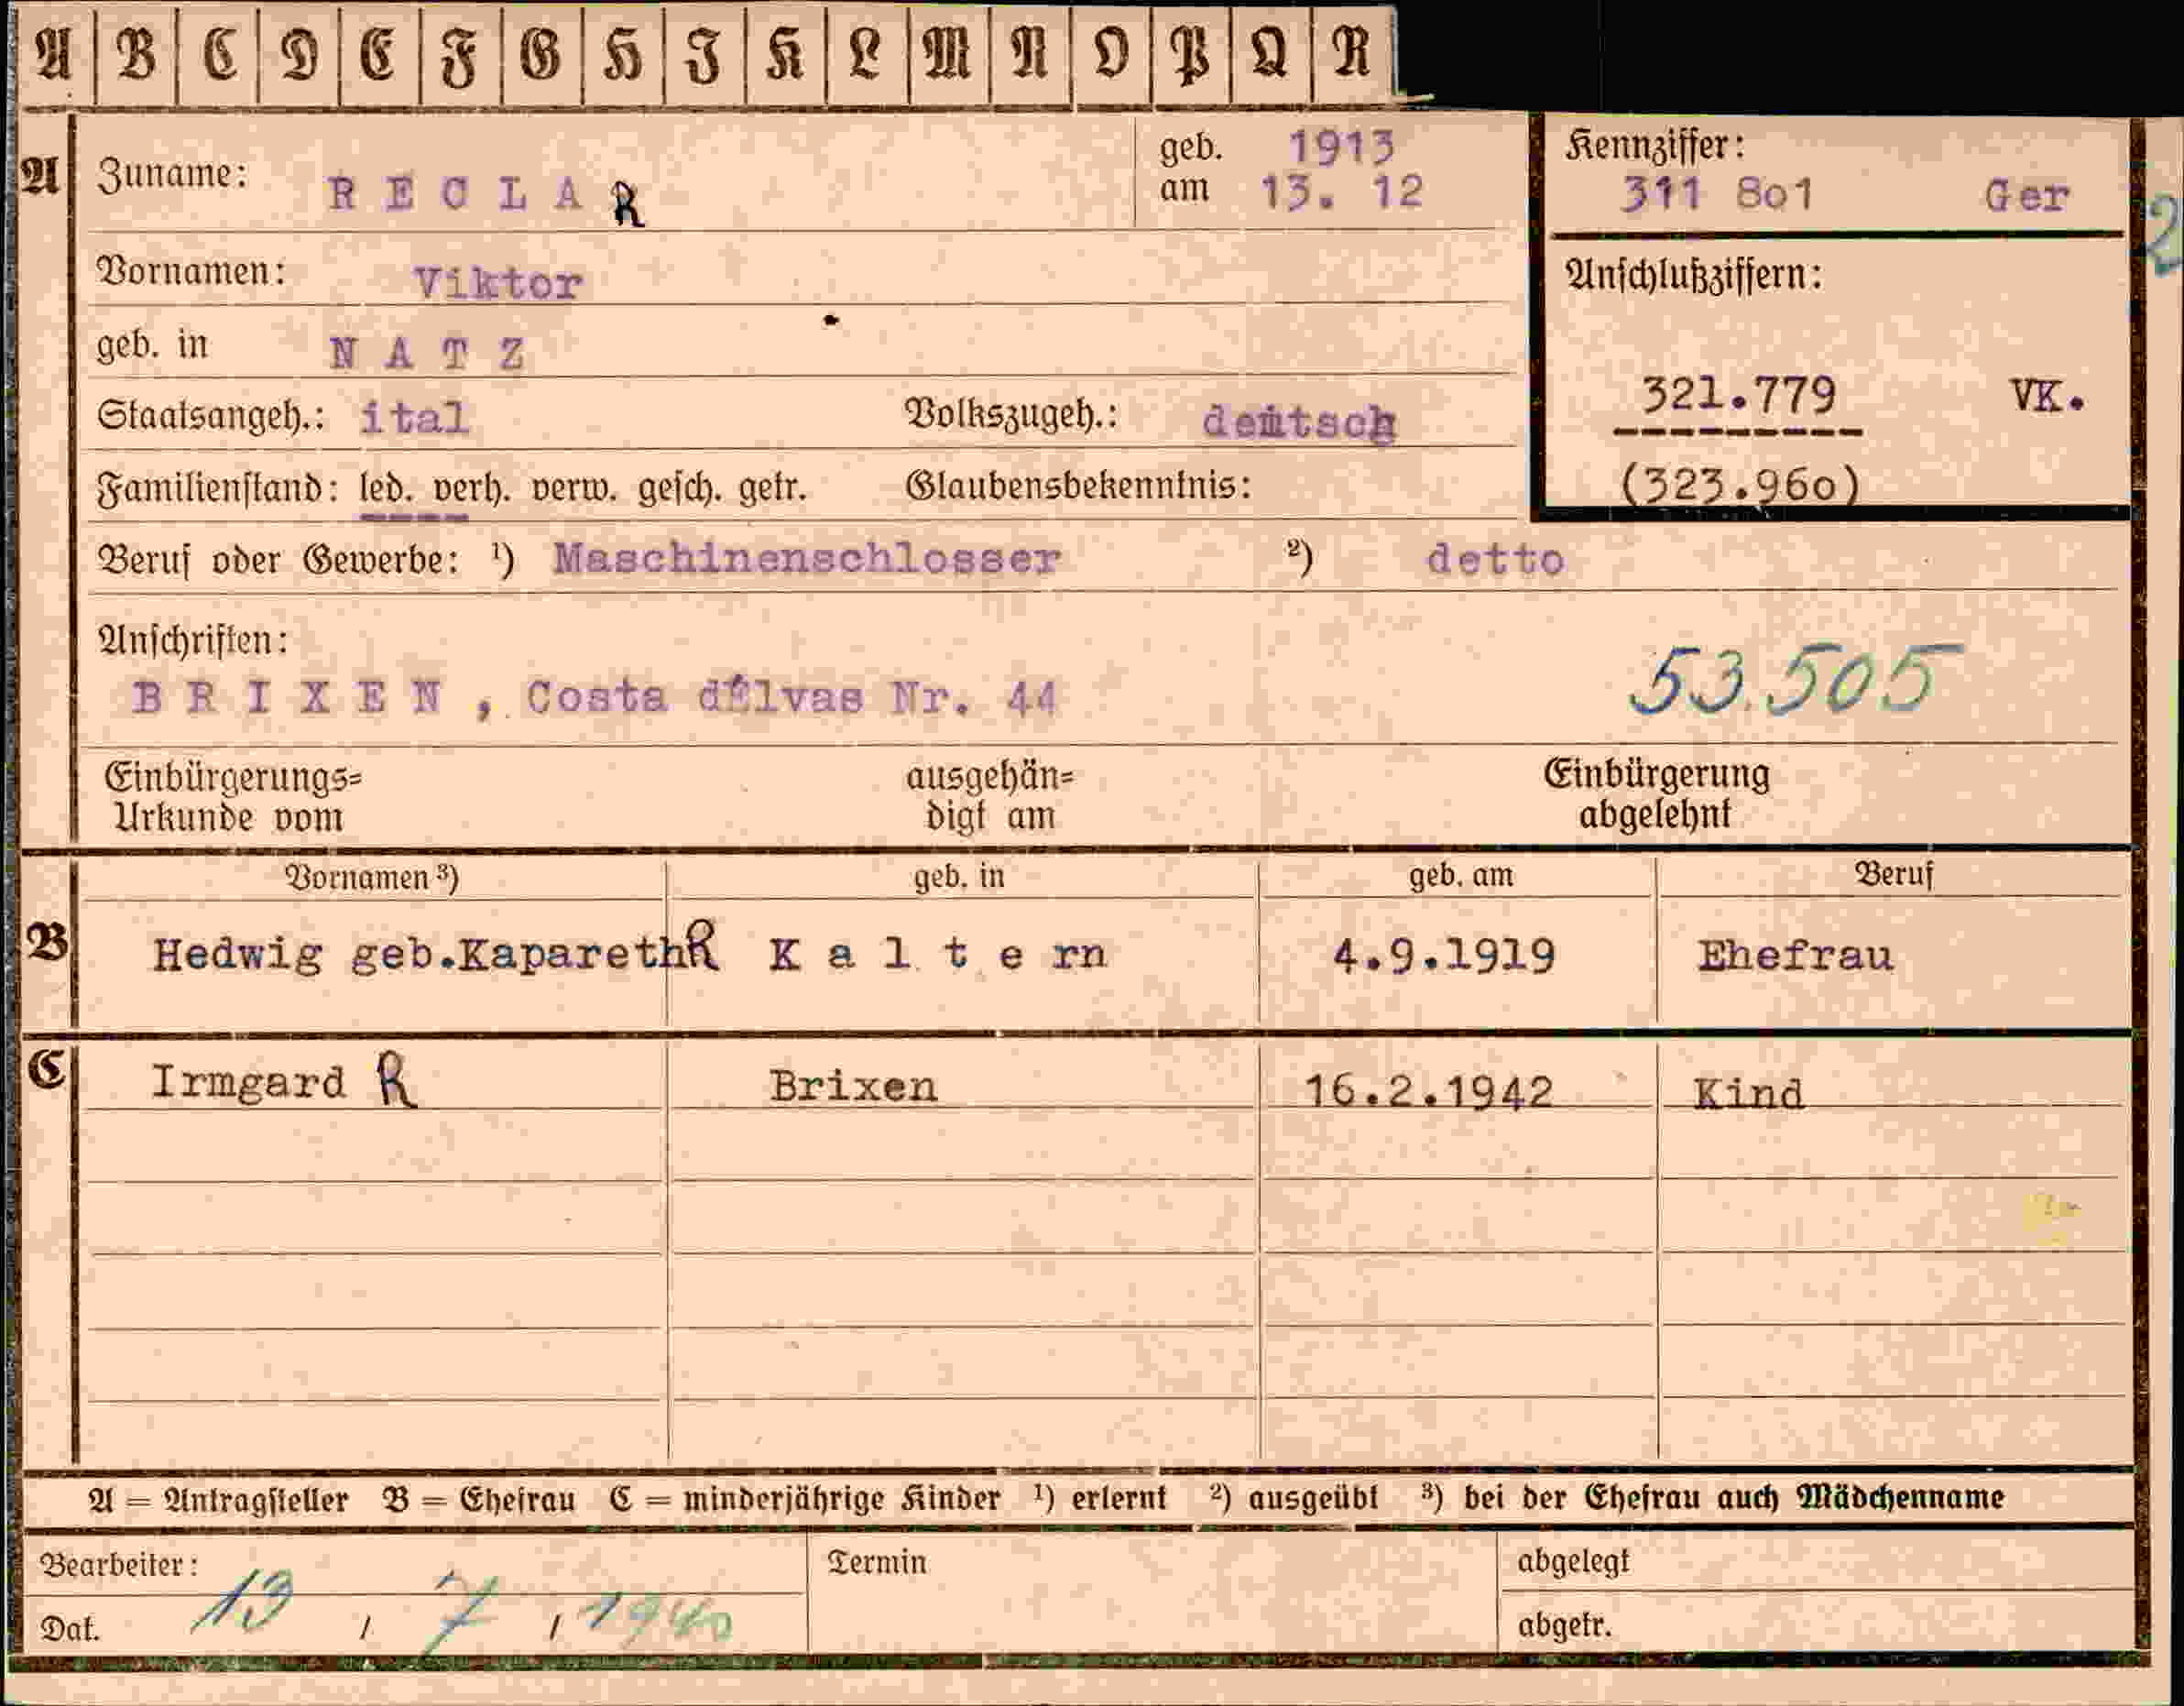 A B C D E F G H J K L M N O P Q R
A Zuname: RECLA R geb. 1913
am 13. 12
Kennziffer:
311 8o1 Ger
2
Vornamen: Viktor
Anschlußziffern:
geb. in NATZ
321.779 VK.
Staatsangeh.: ital Volkszugeh.: deutsch
(323.96o)
Familienstand: led. verh. verw. gesch. getr. Glaubensbekenntnis:
Beruf oder Gewerbe: ¹) Maschinenschlosser ²) detto
Anschriften:
BRIXEN, Costa d'Elvas Nr. 44 53.505
Einbürgerungs= ausgehän= Einbürgerung
Urkunde vom digt am abgelehnt
Vornamen ³) geb. in geb. am Beruf
B Hedwig geb.Kapareth R Kaltern 4.9.1919 Ehefrau
C Irmgard R Brixen 16.2.1942 Kind
A = Antragsteller B = Ehefrau C = minderjährige Kinder ¹) erlernt ²) ausgeübt ³) bei der Ehefrau auch Mädchenname
Bearbeiter: Termin abgelegt
Dat. 13 / 7 / 1940 abgetr.